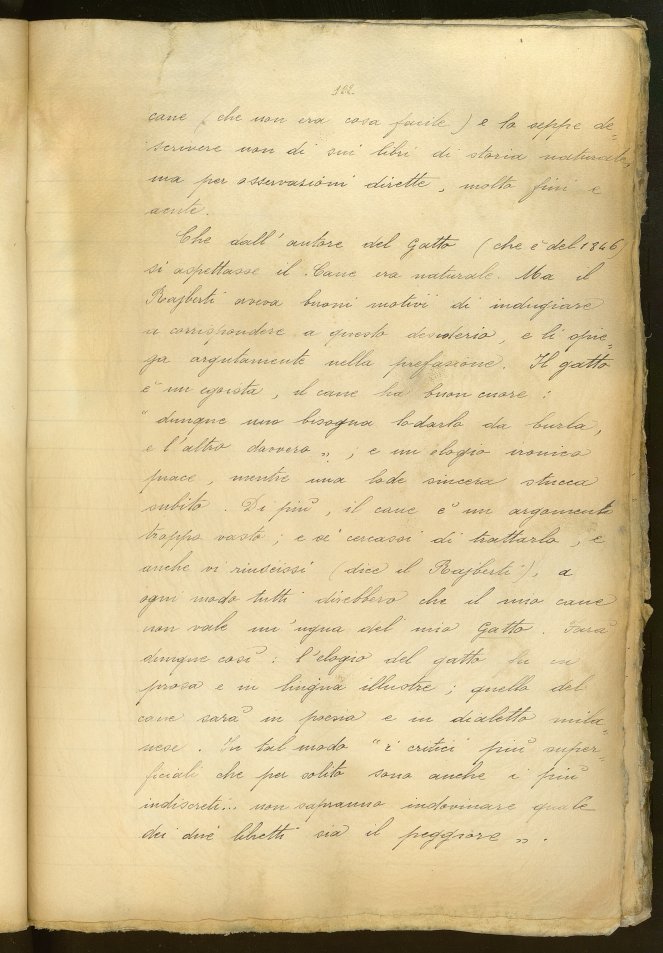 122
cane (che non era cosa facile) e lo seppe de=
scrivere non di sui libri di storia naturale,
ma per osservazioni dirette, molto fini e
acute.
Che dall'autore del Gatto (che è del 1846)
si aspettasse il Cane era naturale. Ma il
Rajberti aveva buoni motivi di indugiare
a corrispondere a questo desiderio, e li spie=
ga argutamente nella prefazione. Il gatto
è un egoista, il cane ha buon cuore:
"dunque uno bisogna lodarlo da burla,
e l'altro davvero„; e un elogio ironico
piace, mentre una lode sincera stucca
subito. Di più, il cane è un argomento
troppo vasto; e se cercassi di trattarlo, e
anche vi riuscissi (dice il Rajberti), a
ogni modo tutti direbbero che il mio cane
non vale un'ugna del mio Gatto. Sarà
dunque così: l'elogio del gatto fu in
prosa e in lingua illustre; quello del
cane sarà in poesia e in dialetto mila=
nese. In tal modo "i critici più super=
ficiali che per solito sono anche i più
indiscreti... non sapranno indovinare quale
dei due libretti sia il peggiore„.